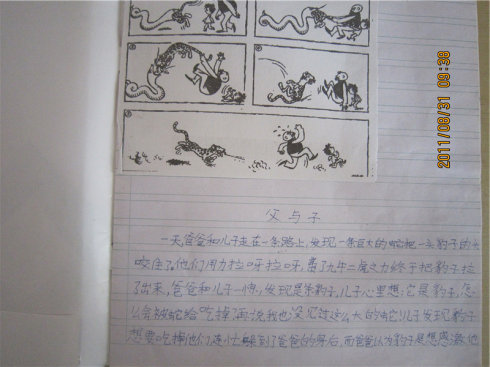 2011/08/31 09:38
父与子
一天,爸爸和儿子走在一条路上,发现一条巨大的蛇把一头豹子的头
咬住了,他们用力拉呀拉呀,费了九牛二虎之力终于把豹子拉
了出来,爸爸和儿子一愣,发现是条豹子,儿子心里想:它是豹子,怎
么会被蛇给吃掉了再说我也没见过这么大的蛇!儿子发现豹子
想要吃掉他们连忙躲到了爸爸的身后,而爸爸认为豹子是想感激他